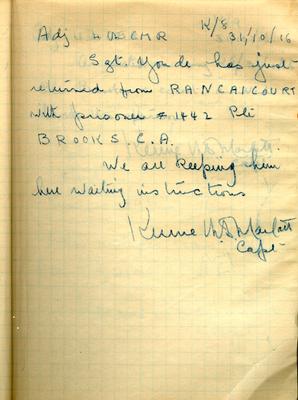 K/8
Adj 4th CMR 31/10/16
Sgt. Yonde has just
returned from RANCANCOURT
with prisoner # 1442 Pte
BROOKS, C.A.
We are keeping him
here waiting instructions
Capt